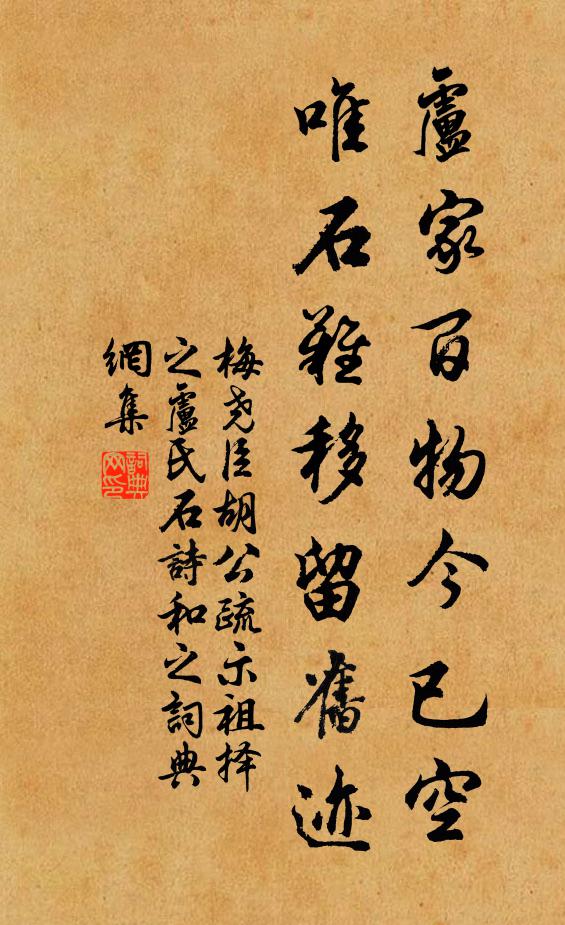 盧家百物今已空
唯石難移留舊迹
梅尧臣胡公疏示祖择
之盧氏石詩和之詞典
網集
詞典
网印